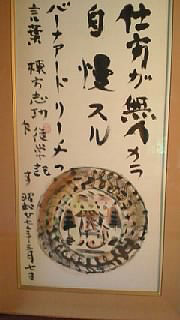 仕方が無イカラ
自慢スル
バーナアード リーチの
言葉 棟方志功
昭和廿七年二月七日